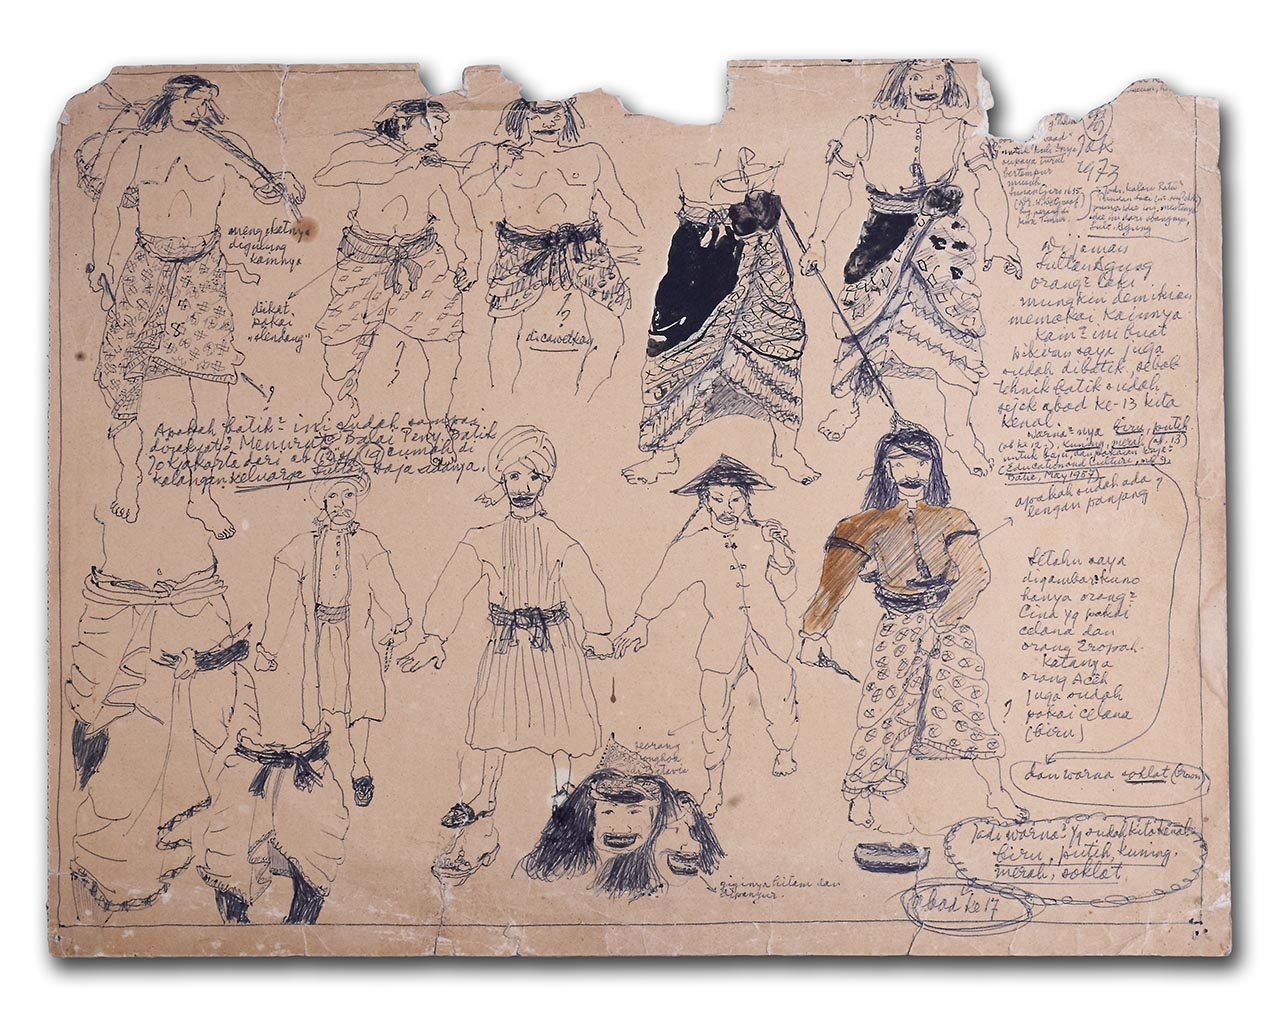 mengikatnya
digulung
kainnya
diikat
pakai
"slendang"
?
?
?
dicawetkan
Apakah batik² ini sudah sampai
dirakyat? Menurut Balai Peny. Batik
Jokjakarta dari ab 13-17 (?) cumah di
kalangan keluarga Sultan saja adanya.
supaya turut
bertempur
Jak
1973
Di jaman
Sultan Agung
orang² laki
mungkin demikian
memakai kainnya
kain² ini buat
pikiran saya juga
sudah dibatik, sebab
tehnik batik sudah
sejak abad ke-13 kita
kenal.
Warna²nya biru, putih
(ab ke 12-), kuning, merah (ab. 13)
untuk baju, dan pakaian
(Education and Culture, no 9,
May 1957)
apakah sudah ada ?
lengan panjang
Setahu saya
digambar kuno
hanya orang²
Cina yg pakai
celana dan
orang Eropah.
Katanya
orang Aceh
juga sudah
pakai celana
(biru)
?
dan warna soklat (Brown)
Jadi warna² yg sudah kita kenal
biru, putih, kuning,
merah, soklat.
abad ke 17
seorang
Tiongkok
di Batavia
giginya hitam dan
dipangur.